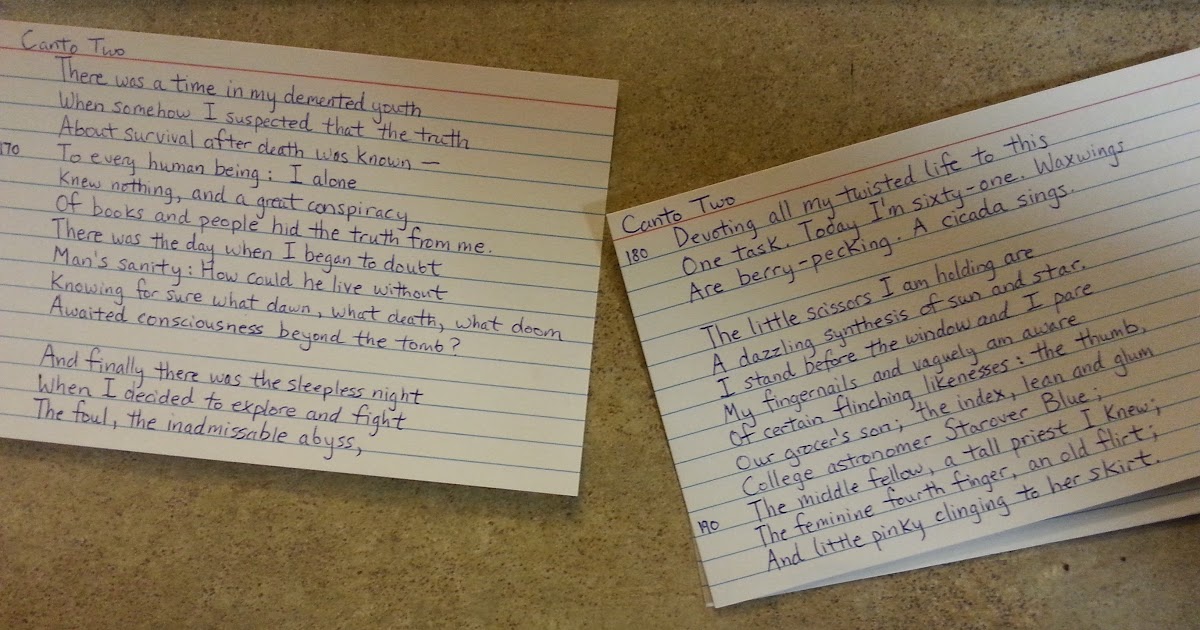 Canto Two
There was a time in my demented youth
When somehow I suspected that the truth
About survival after death was known —
170 To every human being: I alone
Knew nothing, and a great conspiracy
Of books and people hid the truth from me.
There was the day when I began to doubt
Man's sanity: How could he live without
Knowing for sure what dawn, what death, what doom
Awaited consciousness beyond the tomb?
And finally there was the sleepless night
When I decided to explore and fight
The foul, the inadmissable abyss,
Canto Two
Devoting all my twisted life to this
180 One task. Today I'm sixty-one. Waxwings
Are berry-pecking. A cicada sings.
The little scissors I am holding are
A dazzling synthesis of sun and star.
I stand before the window and I pare
My fingernails and vaguely am aware
Of certain flinching likenesses: the thumb,
Our grocer's son; the index, lean and glum
College astronomer Starover Blue;
The middle fellow, a tall priest I knew;
190 The feminine fourth finger, an old flirt;
And little pinky clinging to her skirt.